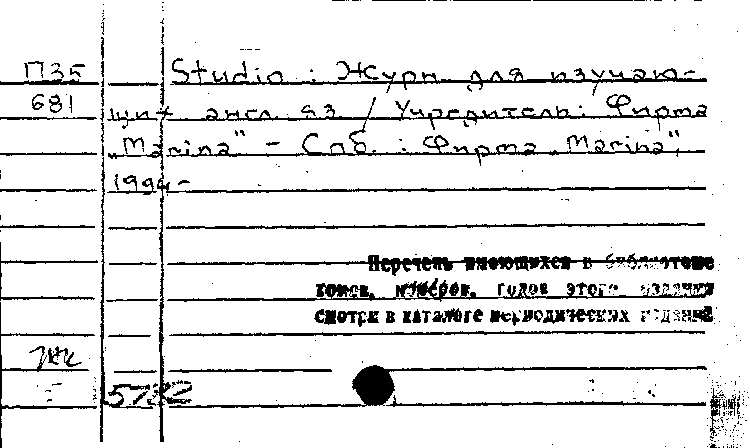 П35 Studio : Журн. для изучаю-
681 щих англ. яз. / Учредитель: Фирма
„Marina" - Спб. : Фирма „Marina",
1994-
Перечень имеющихся в библиотеке
томов, номеров, годов этого издания
смотри в каталоге периодических изданий
5782